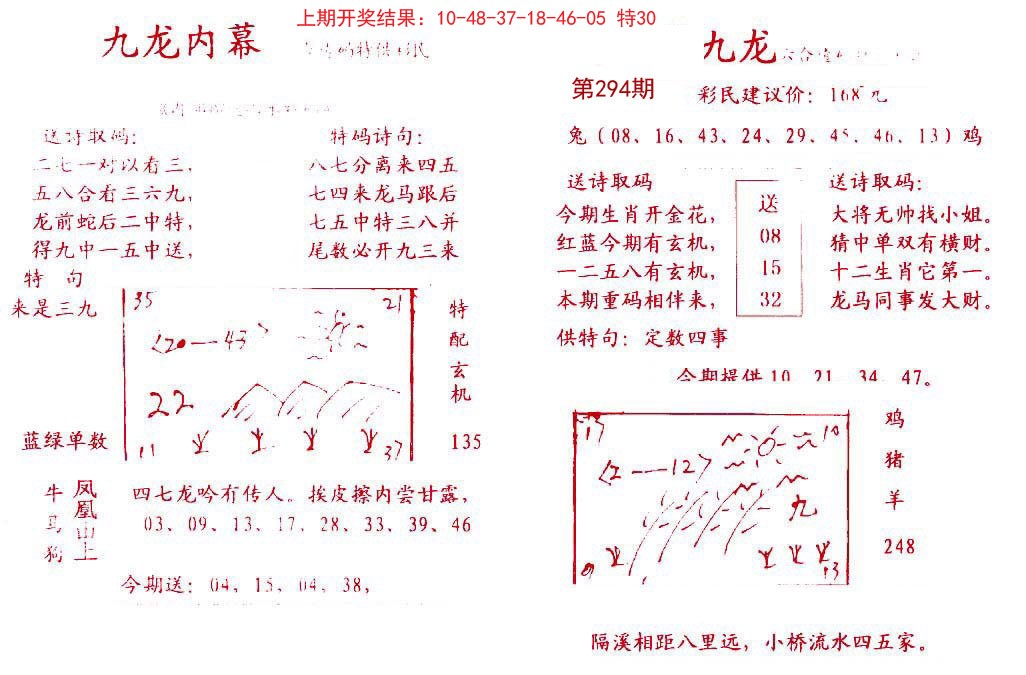 上期开奖结果：10-48-37-18-46-05 特30
九龙内幕
码特供彩民
送诗取码：
二七一对以看三，
五八合看三六九，
龙前蛇后二中特，
得九中一五中送，
特码诗句：
八七分离来四五
七四来龙马跟后
七五中特三八并
尾数必开九三来
特 句
来是三九
蓝绿单数
35
21
<20—43>
22
11
37
特配玄机
135
牛马狗
凤凰山上
四七龙吟有传人。挨皮擦内尝甘露，
03、09、13、17、28、33、39、46
今期送：04，15，04，38，
九龙
六合
第294期
彩民建议价：168元
兔（08、16、43、24、29、45、46、13）鸡
送诗取码
今期生肖开金花，
红蓝今期有玄机，
一二五八有玄机，
本期重码相伴来，
送
08
15
32
送诗取码：
大将无帅找小姐。
猜中单双有横财。
十二生肖它第一。
龙马同事发大财。
供特句：定数四事
今期提供10、21、34、47。
10
<2—12>
九
13
鸡
猪
羊
248
隔溪相距八里远，小桥流水四五家。